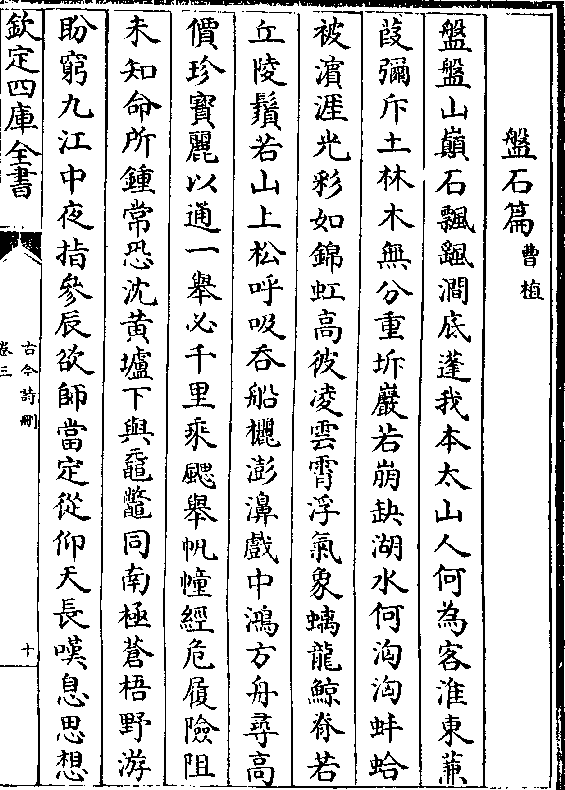 盤石篇曹植
盤盤山巔石飄颻澗底蓬我本太山人何為客淮東蒹
葭彌斥土林木無分重坼巖若崩缺湖水何洶洶蚌蛤
被濱涯光彩如錦虹高彼凌雲霄浮氣象螭龍鯨脊若
丘陵鬚若山上松呼吸吞船欐澎濞戲中鴻方舟尋高
價珍寳麗以通一舉必千里乘颸舉帆幢經危履險阻
未知命所鍾常恐沈黃壚下與黿鼈同南極蒼梧野游
盼窮九江中夜指參辰欲師當定從仰天長嘆息思想
欽定四庫全書
古今詩刪
卷三
十